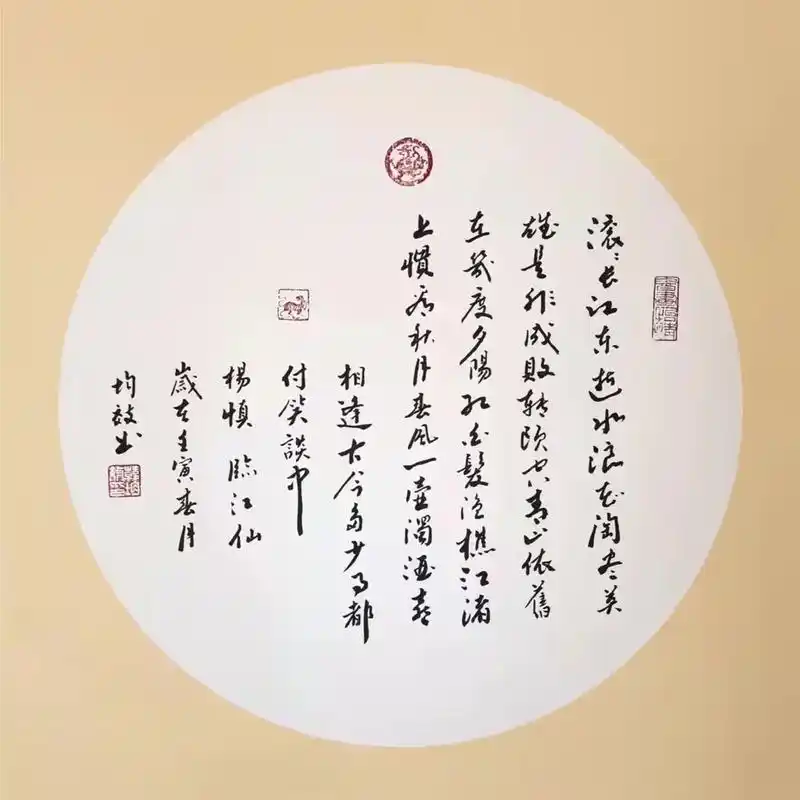 滚滚长江东逝水浪花淘尽英
雄是非成敗转頭空青山依舊
在幾度夕陽红白髮渔樵江渚
上慣看秋月春风一壺濁酒喜
相逢古今多少事都
付笑談中
楊慎 臨江仙
歲在壬寅春月
均书